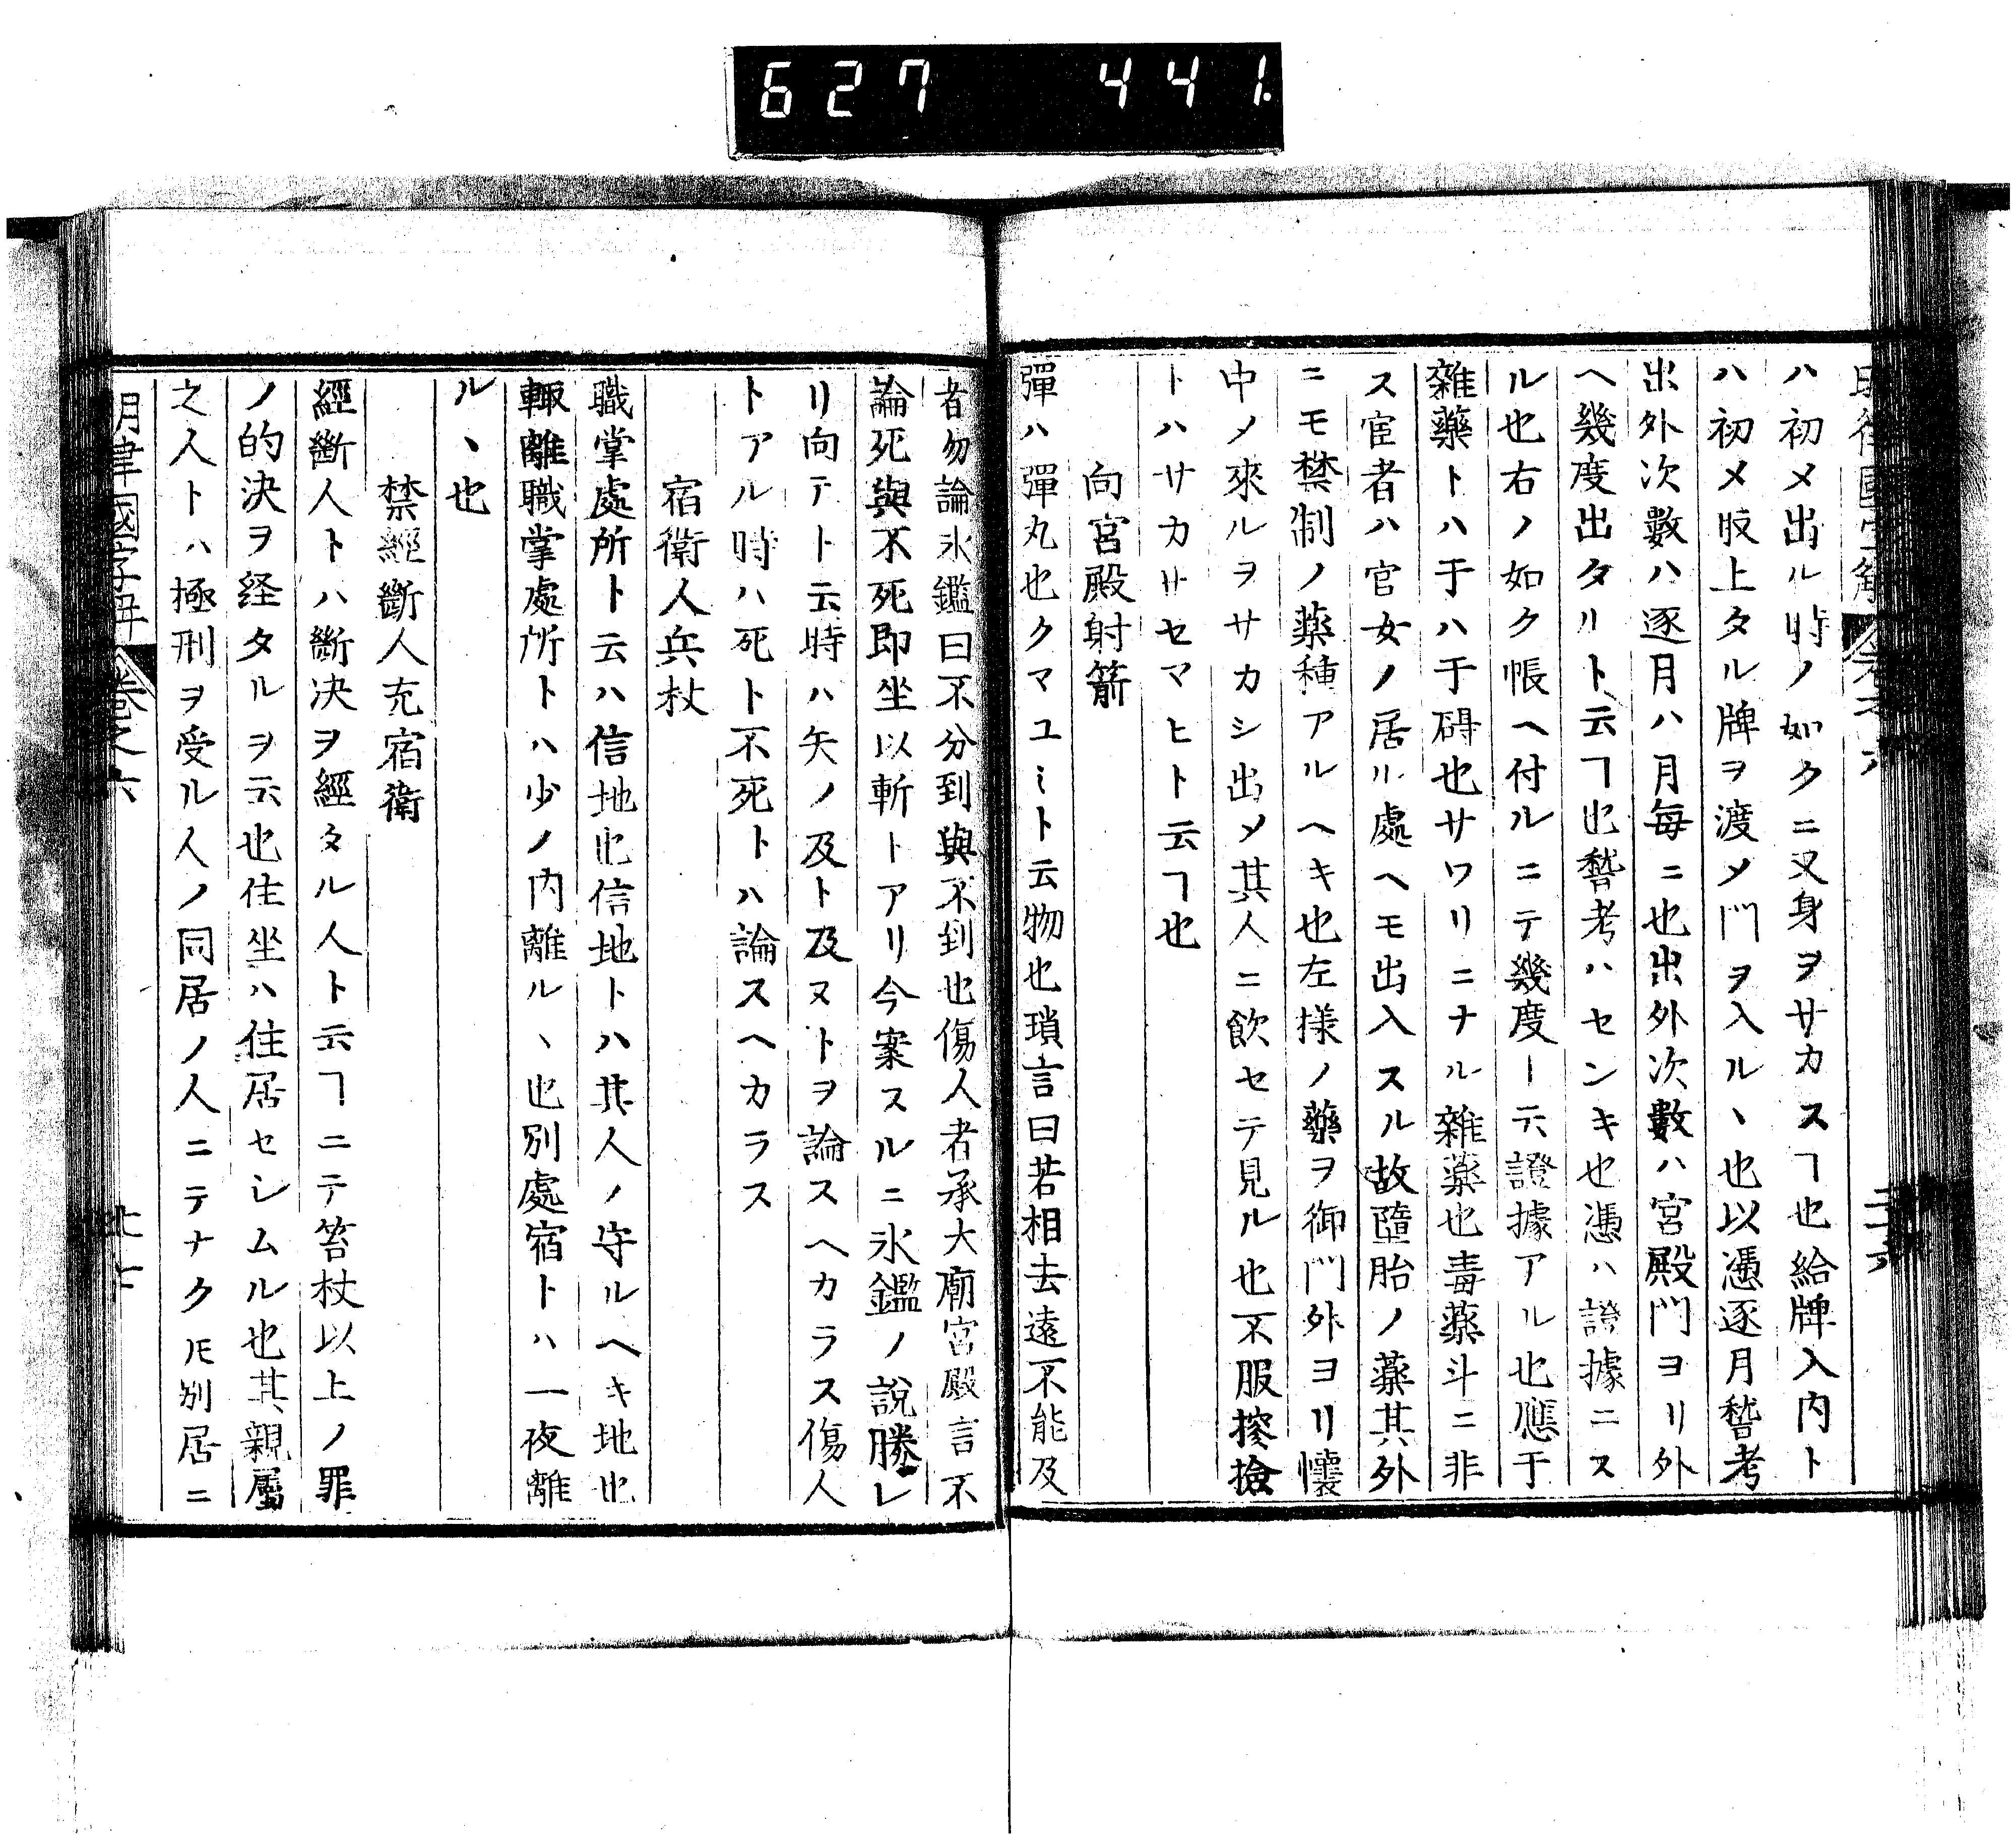 627 441
明律國字解 卷之六 二十六
ハ初メ出ル時ノ如クニ又身ヲサカスヿ也給牌入内ト
ハ初メ版上タル牌ヲ渡メ門ヲ入ル丶也以憑逐月稽考
出外次數ハ逐月ハ月毎ニ也出外次數ハ宮殿門ヨリ外
ヘ幾度出タリト云ヿ也稽考ハセンキ也憑ハ證據ニス
ル也右ノ如ク帳ヘ付ルニテ幾度ト云證據アル也應于
雜藥トハ于ハ于碍也サワリニナル雜藥也毒藥斗ニ非
ス宦者ハ官女ノ居ル處ヘモ出入スル故墮胎ノ藥其外
ニモ禁制ノ藥種アルヘキ也左様ノ藥ヲ御門外ヨリ懷
中メ來ルヲサカシ出メ其人ニ飲セテ見ル也不服搜撿
トハサカサセマヒト云ヿ也
向宮殿射箭
彈ハ彈丸也クマユミト云物也瑣言曰若相去遠不能及
者勿論氷鑑曰不分到與不到也傷人者承大廟宮殿言不
論死與不死即坐以斬トアリ今案スルニ氷鑑ノ説勝レ
リ向テト云時ハ矢ノ及ト及ヌトヲ論スヘカラス傷人
トアル時ハ死ト不死トハ論スヘカラス
宿衛人兵杖
職掌處所ト云ハ信地也信地トハ其人ノ守ルヘキ地也
輙離職掌處所トハ少ノ内離ル丶也別處宿トハ一夜離
ル丶也
禁經斷人充宿衛
經斷人トハ斷决ヲ經タル人ト云ヿニテ笞杖以上ノ罪
ノ的決ヲ経タルヲ云也住坐ハ住居セシムル也其親屬
之人トハ極刑ヲ受ル人ノ同居ノ人ニテナクㇳモ別居ニ
明律國字解 卷之六 廿七